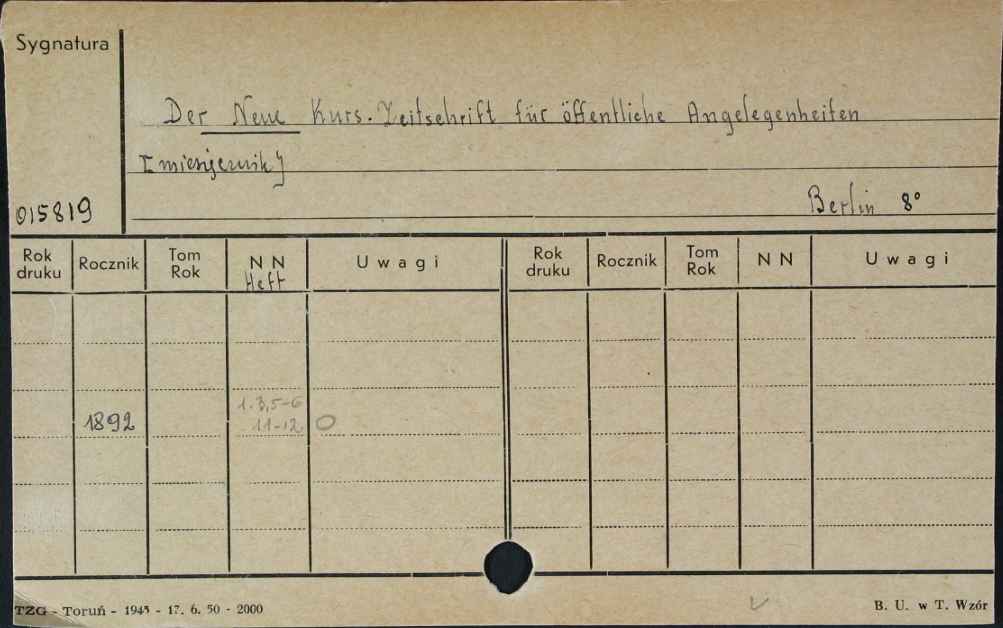 Sygnatura
Der Neue Kurs. Zeitschrift für öffentliche Angelegenheiten
[miesięcznik]
015819
Berlin 8°
Rok druku Rocznik Tom Rok NN Heft Uwagi Rok druku Rocznik Tom Rok NN Uwagi
1.3,5-6
1892 11-12 O
TZG - Toruń - 1945 - 17. 6. 50 - 2000
B. U. w T. Wzór